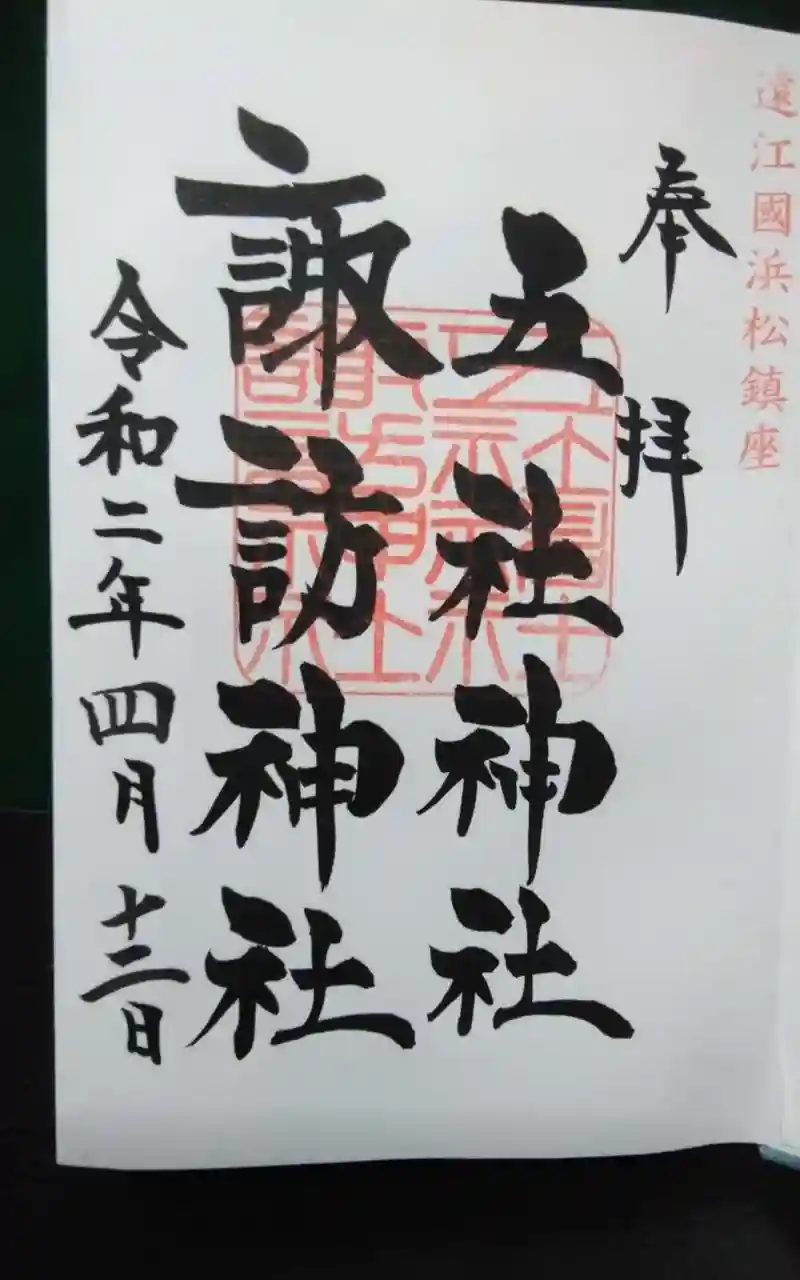 遠江國浜松鎮座
奉拝
五社神社
諏訪神社
令和二年四月十二日